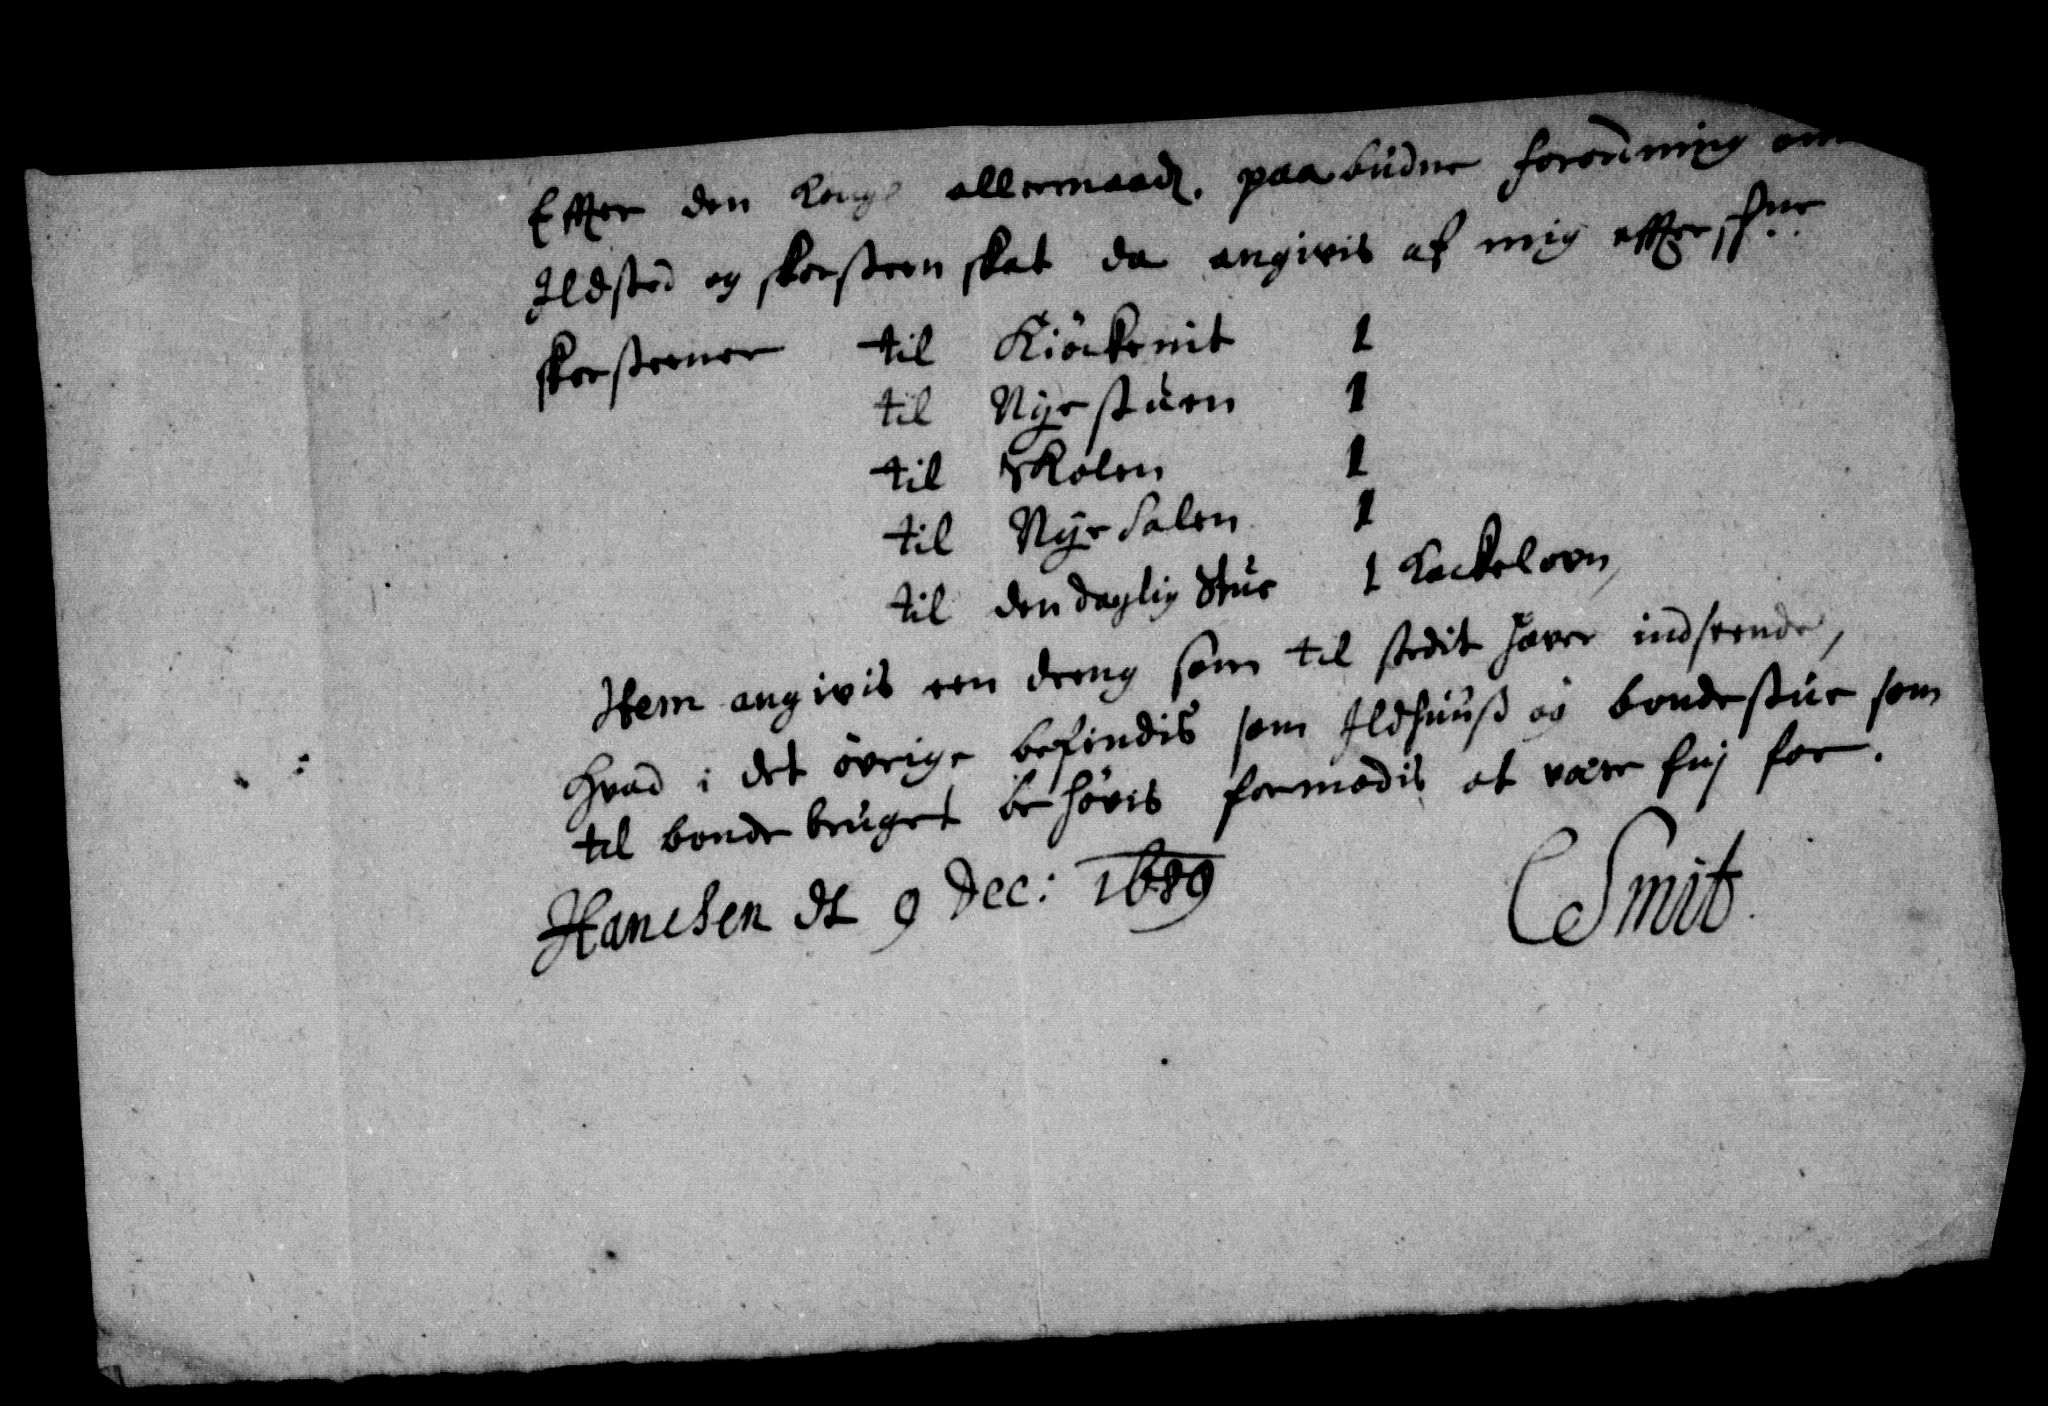 Efter den Kong: allernaad. paabudne forordning om
Ildsted og skorsteen skat da angivis af mig efterskne
skorsteener til Kiöckenit 1
til Nÿe stuen 1
til skolen 1
til Nÿe Salen 1
til den daglig Stue 1 Kackelovn,
Item angivis een dreng som til stedit haver indseende,
Hvad i det övrige befindis som Ildhuuß og bondestue som
til bondebruget behövis formodis at være frj for.
Hanesen dt 9 Dec: 1689
CSmit